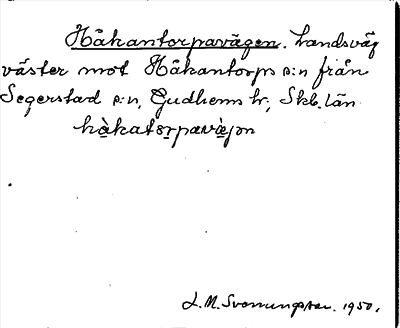 Håkantorpavägen. Landsväg
väster mot Håkantorps s:n från
Segerstad s:n, Gudhems hr, Skb. län
hàkatɒrpavæ̀jɒn
L. M. Svenungsson. 1950.